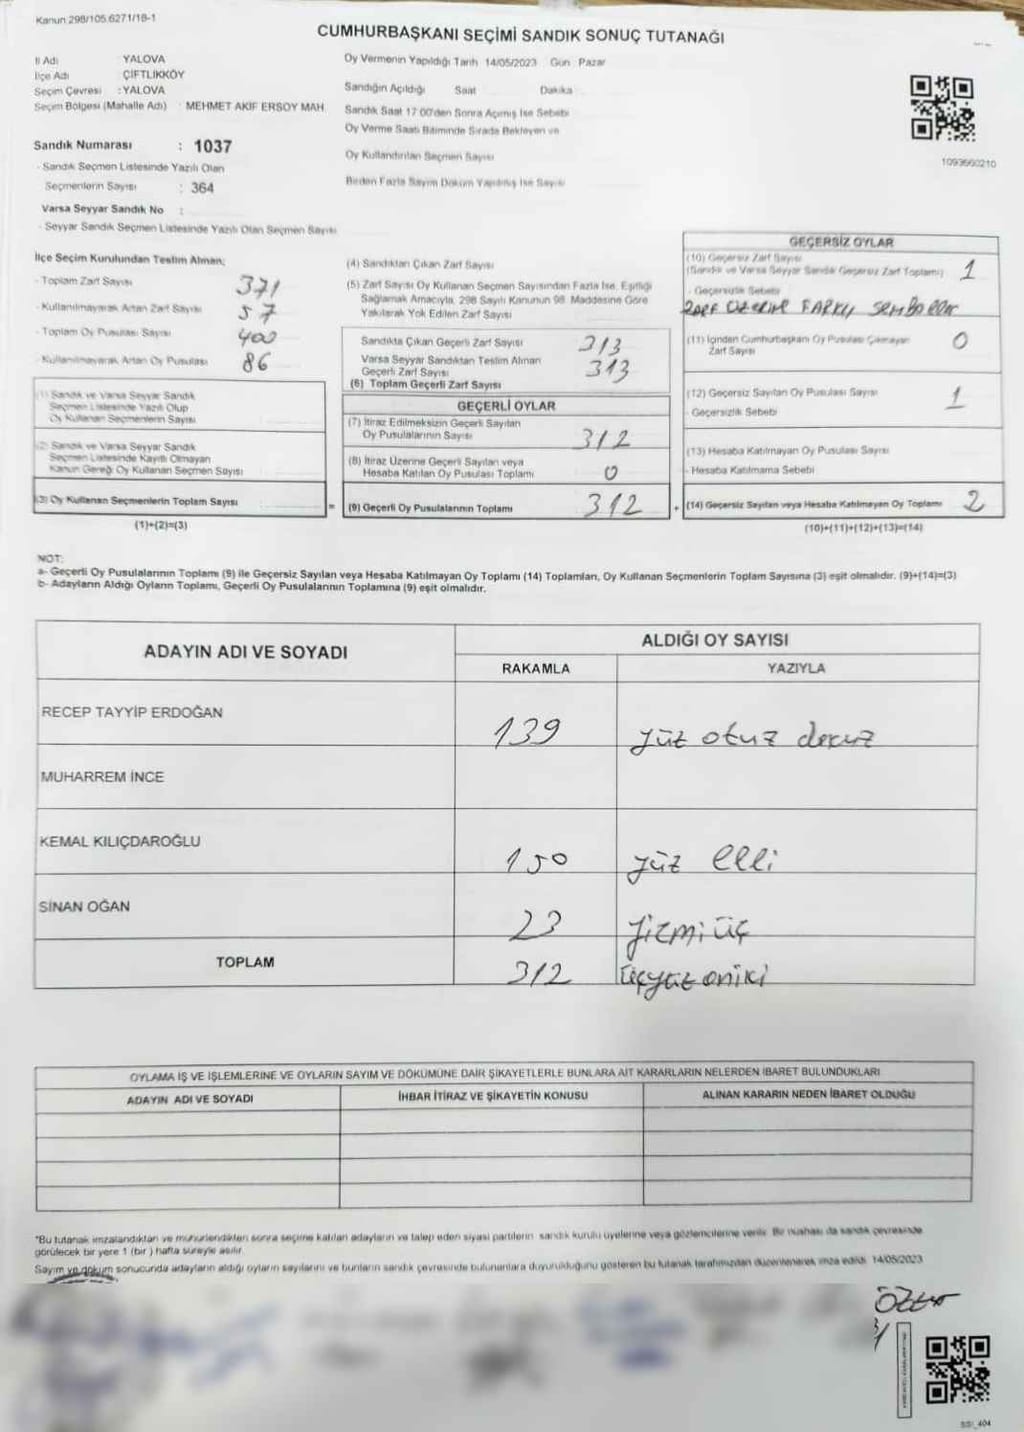 Kanun 298/105.6271/18-1
CUMHURBAŞKANI SEÇİMİ SANDIK SONUÇ TUTANAĞI
İl Adı YALOVA
İlçe Adı : ÇİFTLİKKÖY
Seçim Çevresi : YALOVA
Seçim Bölgesi (Mahalle Adı) : MEHMET AKİF ERSOY MAH
Sandık Numarası : 1037
- Sandık Seçmen Listesinde Yazılı Olan
Seçmenlerin Sayısı : 364
Varsa Seyyar Sandık No :
- Seyyar Sandık Seçmen Listesinde Yazılı Olan Seçmen Sayısı
Oy Vermenin Yapıldığı Tarih 14/05/2023 Gün Pazar
Sandığın Açıldığı Saat Dakika
Sandık Saat 17:00'den Sonra Açılmış İse Sebebi
Oy Verme Saati Bitiminde Sırada Bekleyen ve
Oy Kullandırılan Seçmen Sayısı
Birden Fazla Sayım Döküm Yapılmış İse Sayısı
1093660210
İlçe Seçim Kurulundan Teslim Alınan;
- Toplam Zarf Sayısı 371
- Kullanılmayarak Artan Zarf Sayısı 57
- Toplam Oy Pusulası Sayısı 400
- Kullanılmayarak Artan Oy Pusulası 86
(1) Sandık ve Varsa Seyyar Sandık
Seçmen Listesinde Yazılı Olup
Oy Kullanan Seçmenlerin Sayısı
(2) Sandık ve Varsa Seyyar Sandık
Seçmen Listesinde Kayıtlı Olmayan
Kanun Gereği Oy Kullanan Seçmen Sayısı
(3) Oy Kullanan Seçmenlerin Toplam Sayısı =
(1)+(2)=(3)
(4) Sandıktan Çıkan Zarf Sayısı
(5) Zarf Sayısı Oy Kullanan Seçmen Sayısından Fazla İse, Eşitliği
Sağlamak Amacıyla, 298 Sayılı Kanunun 98. Maddesine Göre
Yakılarak Yok Edilen Zarf Sayısı
Sandıkta Çıkan Geçerli Zarf Sayısı 313
Varsa Seyyar Sandıktan Teslim Alınan
Geçerli Zarf Sayısı 313
(6) Toplam Geçerli Zarf Sayısı
GEÇERLİ OYLAR
(7) İtiraz Edilmeksizin Geçerli Sayılan
Oy Pusulalarının Sayısı 312
(8) İtiraz Üzerine Geçerli Sayılan veya
Hesaba Katılan Oy Pusulası Toplamı 0
(9) Geçerli Oy Pusulalarının Toplamı 312 +
GEÇERSİZ OYLAR
(10) Geçersiz Zarf Sayısı
(Sandık ve Varsa Seyyar Sandık Geçersiz Zarf Toplamı) 1
- Geçersizlik Sebebi
ZARF ÜZERİNE FARKLI SEMBOLLER
(11) İçinden Cumhurbaşkanı Oy Pusulası Çıkmayan
Zarf Sayısı 0
(12) Geçersiz Sayılan Oy Pusulası Sayısı 1
- Geçersizlik Sebebi
(13) Hesaba Katılmayan Oy Pusulası Sayısı
- Hesaba Katılmama Sebebi
(14) Geçersiz Sayılan veya Hesaba Katılmayan Oy Toplamı 2
(10)+(11)+(12)+(13)=(14)
NOT:
a- Geçerli Oy Pusulalarının Toplamı (9) ile Geçersiz Sayılan veya Hesaba Katılmayan Oy Toplamı (14) Toplamları, Oy Kullanan Seçmenlerin Toplam Sayısına (3) eşit olmalıdır. (9)+(14)=(3)
b- Adayların Aldığı Oyların Toplamı, Geçerli Oy Pusulalarının Toplamına (9) eşit olmalıdır.
ADAYIN ADI VE SOYADI
ALDIĞI OY SAYISI
RAKAMLA YAZIYLA
RECEP TAYYİP ERDOĞAN 139 yüz otuz dokuz
MUHARREM İNCE
KEMAL KILIÇDAROĞLU 150 yüz elli
SİNAN OĞAN 23 yirmi üç
TOPLAM 312 üçyüz oniki
OYLAMA İŞ VE İŞLEMLERİNE VE OYLARIN SAYIM VE DÖKÜMÜNE DAİR ŞİKAYETLERLE BUNLARA AİT KARARLARIN NELERDEN İBARET BULUNDUKLARI
ADAYIN ADI VE SOYADI İHBAR İTİRAZ VE ŞİKAYETİN KONUSU ALINAN KARARIN NEDEN İBARET OLDUĞU
"Bu tutanak imzalandıktan ve mühürlendikten sonra seçime katılan adayların ve talep eden siyasi partilerin sandık kurulu üyelerine veya gözlemcilerine verilir. Bir nüshası da sandık çevresinde
görülecek bir yere 1 (bir ) hafta süreyle asılır.
Sayım ve döküm sonucunda adayların aldığı oyların sayılarını ve bunların sandık çevresinde bulunanlara duyurulduğunu gösteren bu tutanak tarafımızdan düzenlenerek imza edildi. 14/05/2023